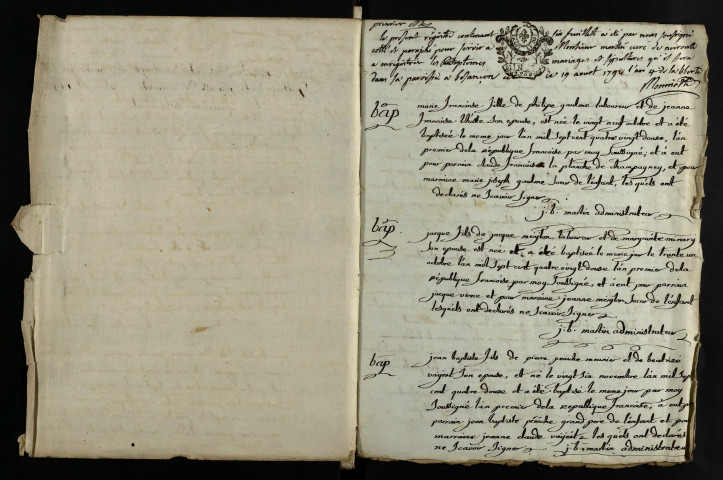 premier
le present registre contenant six feuillets a été par nous soussigné
cotté et paraphé pour servir a Monsieur martin curé de
a enregistrer les Baptemes mariages et sepultures qui se feront
dans sa paroisse a besançon ce 19 aoust 1792 l'an 4 de la liberté
bap
marie francoise fille de philipe gaulme laboureur et de jeanne
francoise son epouse, est née le vingt neuf octobre et a été
baptisée le meme jour l'an mil sept cent quatre vingt douze, l'an
premier de la république francoise par moy soussigné, et a eut
pour parrain claude francois la planche de champagney, et pour
marraine marie joseph gaulme soeur de l'enfant, les quels ont
declarés ne scavoir signer
j. b. martin administrateur
bap
jacque fils de jacque laboureur et de marguerite minary
son epouse est né et a été baptisé le meme jour le trente un
octobre l'an mil sept cent quatre vingt douze l'an premier de la
république francoise par moy soussigné, et a eut pour parrain
jacque et pour maraine jeanne soeur de l'enfant
lesquels ont declarés ne scavoir signer
j. b. martin administrateur
bap
jean baptiste fils de pierre meunier et de beatrix
son epouse, est né le vingt six novembre l'an mil sept
cent quatre douze et a été baptisé le meme jour par moy
soussigné l'an premier de la republique francoise, a eut pour
parrain jean baptiste grand pere de l'enfant et pour
marraine jeanne claude les quels ont declarés
ne scavoir signer j. b. martin administrateur